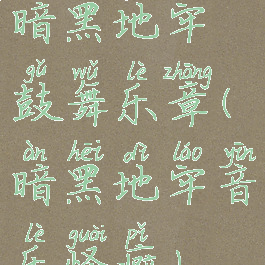 暗黑地牢
gǔ wǔ lè zhāng
鼓舞乐章(
àn hēi dì láo yīn
暗黑地牢音
lè guài pǐ
乐怪癖)